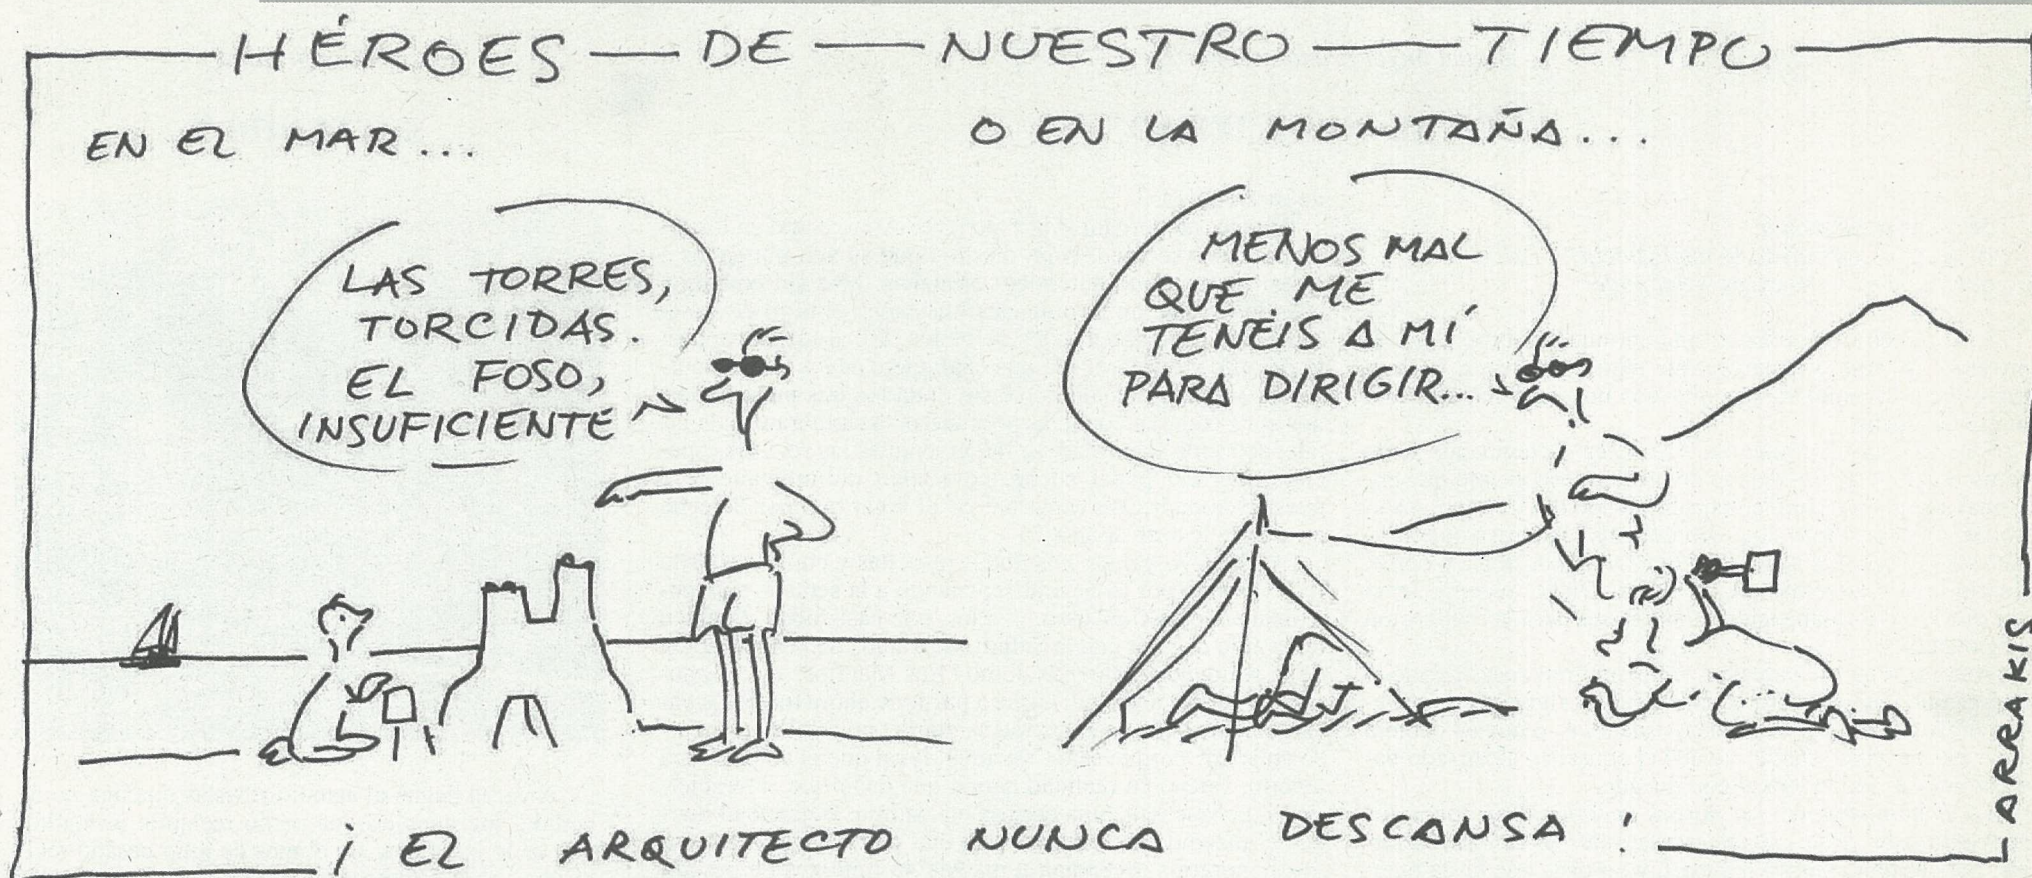 HÉROES DE NUESTRO TIEMPO
EN EL MAR...
O EN LA MONTAÑA...
LAS TORRES,
TORCIDAS.
EL FOSO,
INSUFICIENTE
MENOS MAL
QUE ME
TENÉIS A MÍ
PARA DIRIGIR...
¡EL ARQUITECTO NUNCA DESCANSA!
ARRAKIS